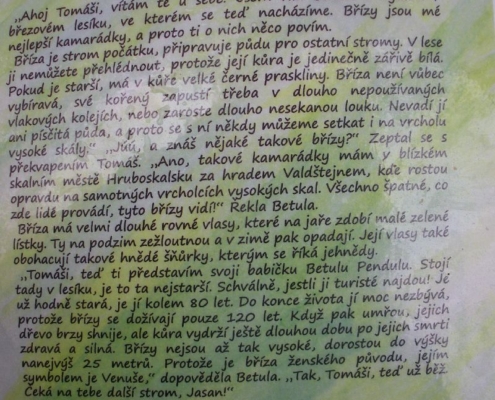 „Ahoj Tomáši, vítám tě u sebe.
březovém lesíku, ve kterém se teď nacházíme. Břízy jsou mé
nejlepší kamarádky, a proto ti o nich něco povím.
Bříza je strom počátku, připravuje půdu pro ostatní stromy. V lese
ji nemůžete přehlédnout, protože její kůra je jedinečně zářivě bílá.
Pokud je starší, má v kůře velké černé praskliny. Bříza není vůbec
vybíravá, své kořeny zapustí třeba v dlouho nepoužívaných
vlakových kolejích, nebo zaroste dlouho nesekanou louku. Nevadí jí
ani písčitá půda, a proto se s ní někdy můžeme setkat i na vrcholu
vysoké skály.“ „Júú, a znáš nějaké takové břízy?“ Zeptal se s
překvapením Tomáš. „Ano, takové kamarádky mám v blízkém
skalním městě Hruboskalsku za hradem Valdštejnem, kde rostou
opravdu na samotných vrcholcích vysokých skal. Všechno špatné, co
zde lidé provádí, tyto břízy vidí!“ Řekla Betula.
Bříza má velmi dlouhé rovné vlasy, které na jaře zdobí malé zelené
lístky. Ty na podzim zežloutnou a v zimě pak opadají. Její vlasy také
obohacují takové hnědé šňůrky, kterým se říká jehnědy.
„Tomáši, teď ti představím svoji babičku Betulu Pendulu. Stojí
tady v lesíku, je to ta nejstarší. Schválně, jestli ji turisté najdou! Je
už hodně stará, je jí kolem 80 let. Do konce života jí moc nezbývá,
protože břízy se dožívají pouze 120 let. Když pak umřou, jejich
dřevo brzy shnije, ale kůra vydrží ještě dlouhou dobu po jejich smrti
zdravá a silná. Břízy nejsou až tak vysoké, dorostou do výšky
nanejvýš 25 metrů. Protože je bříza ženského původu, jejím
symbolem je Venuše,“ dopověděla Betula. „Tak, Tomáši, teď už běž.
Čeká na tebe další strom, Jasan!“